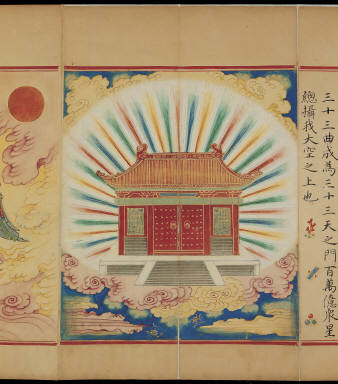 三十三曲成為三十三天之門百萬億眾星
總攝我大空之上也